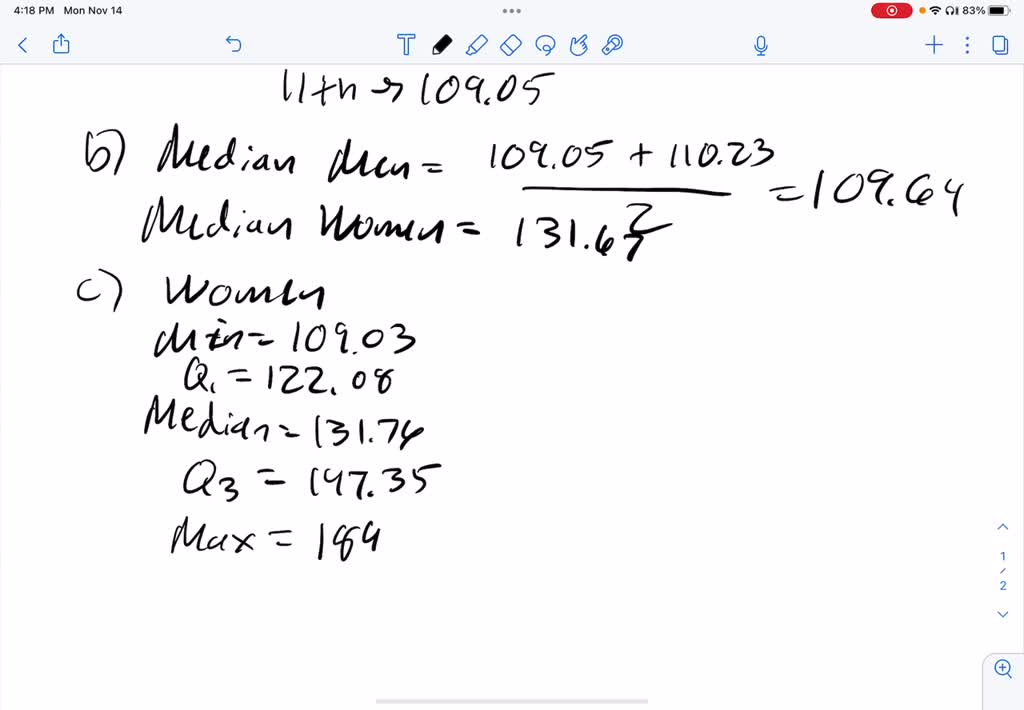 4:18 PM Mon Nov 14
83%
11th → 109.05
b) Median Men = 109.05 + 110.23 / 2 = 109.64
Median Women = 131.67
c) Women
Min = 109.03
Q1 = 122.08
Median = 131.76
Q3 = 147.35
Max = 189
1
/
2